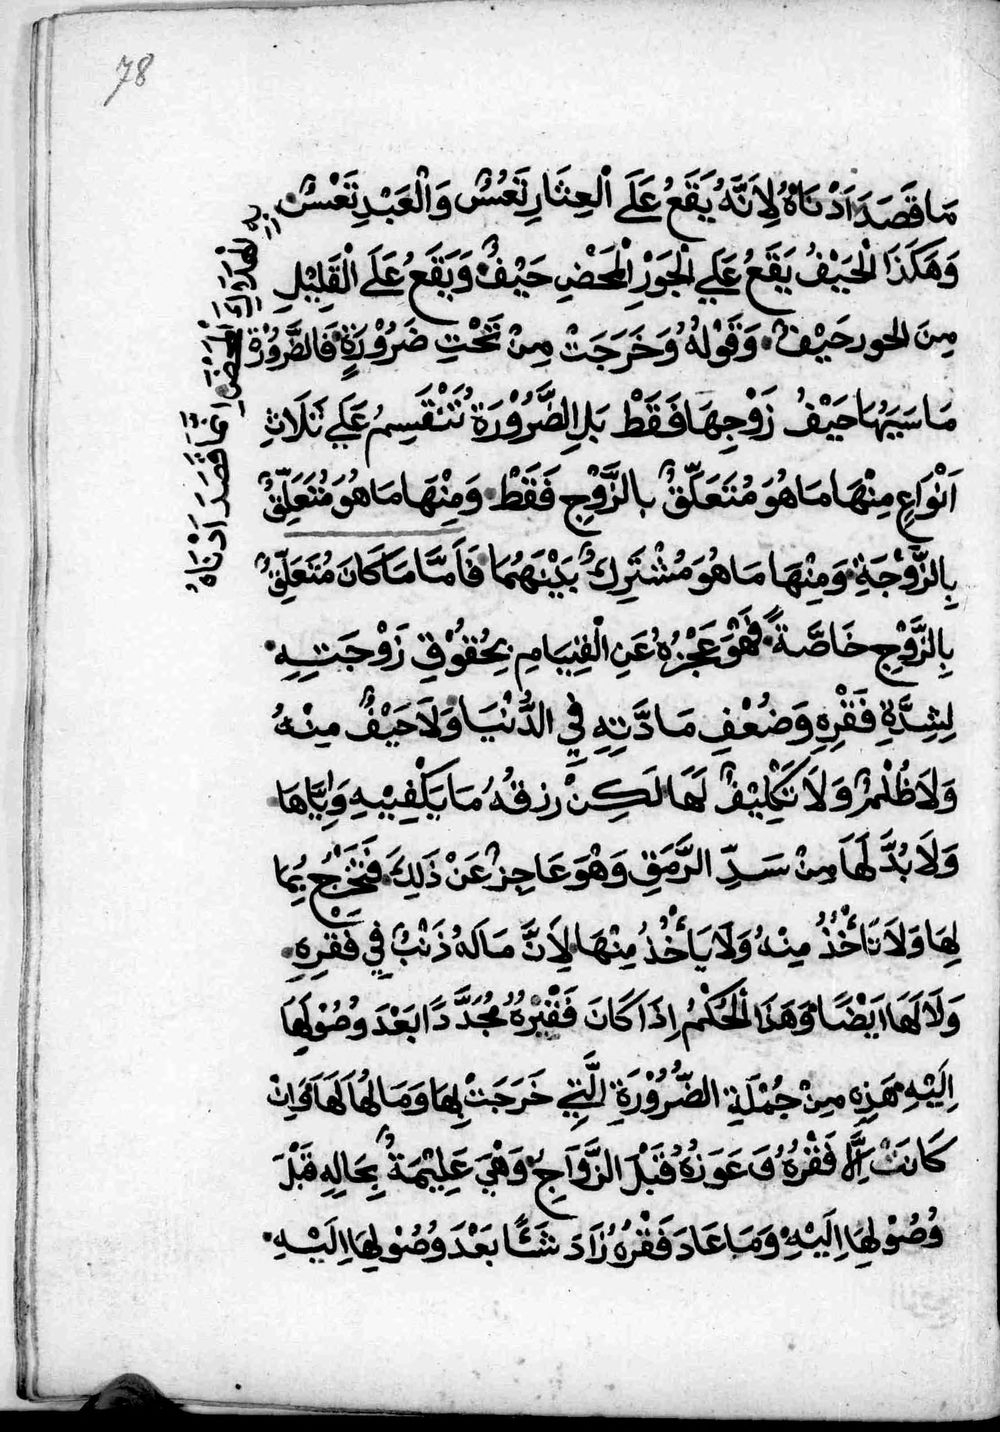 78
مَا قَصَدَ اَدْنَاهُ لِاَنَّهُ يَقَعُ عَلَى الْعِثَارِ تَعْسٌ وَالْعَبْدِ تَعْسٌ
وَهَكَذَا الْحَيْفُ يَقَعُ عَلَي الْجَوْرِ الْمَحْضِ حَيْفٌ وَيَقَعُ عَلَى الْقَلِيْلِ
مِنَ الجور حَيْفٌ. وَقَوْلُهُ وَخَرَجَتْ مِنْ تَحْتِ ضَرُوْرَةٍ فَالضَّرُوْرَةُ
مَا سَبَبُهَا حَيْفُ زَوْجِهَا فَقَطْ بَلِ الضَّرُوْرَةُ تَنْقَسِمُ عَلَي ثَلَاثِ
اَنْوَاعٍ مِنْهَا مَا هُوَ مُتَعَلِّقٌ بِالزَّوْجِ فَقَطْ. وَمِنْهَا مَا هُوَ مُتَعَلِّقٌ
بِالزَّوْجَةِ. وَمِنْهَا مَا هُوَ مُشْتَرِكٌ بَيْنَهُمَا فَاَمَّا مَا كَانَ مُتَعَلِّقٌ
بِالزَّوْجِ خَاصَّةً. فَهْوَ عَجْزُهُ عَنِ الْقِيَامِ بِحُقُوْقِ زَوْجَتِهِ.
لِشِدَّةِ فَقْرِهِ وَضُعْفِ مَادَّتِهِ فِي الدُّنْيَا وَلَا حَيْفٌ مِنْهُ
وَلَا ظُلْمٌ وَلَا تَكْلِيْفٌ لَهَا لَكِنْ رزقُهُ مَا يَكْفِيْهِ وَاِيَّاهَا
وَلَا بُدَّ لَهَا مِنْ سَدِّ الرَّمَقِ وَهْوَ عَاجِزٌ عَنْ ذَلِكَ. فَتَخْرُجُ بِمَا
لِهَا وَلَا تَأْخُذُ مِنْهُ وَلَا يَأْخُذُ مِنْهَا لِاَنَّ مَا لَهُ ذَنْبٌ فِي فَقْرِهِ.
وَلَا لَهَا اَيْضًا وَهَذَا الْحُكْمُ اِذَا كَانَ فَقْرُهُ مُجَدَّدًا بَعْدَ وُصُوْلِهَا
اِلَيْهِ هَذِهِ مِنْ جُمْلَةِ الضَّرُوْرَةِ الَّتِي خَرَجَتْ بِهَا وَمَالُهَا لَهَا وَاِنْ
كَانَتْ فَقْرُهُ وَعَوَزُهُ قَبْلَ الزَّوَاجِ. وَهْيَ عَلِيْمَةٌ بِحَالِهِ قَبْلَ
وُصُوْلِهَا اِلَيْهِ. وَمَا عَادَ فَقْرُهُ زَادَ شَئًا بَعْدَ وُصُوْلِهَا اِلَيْهِ.
اِنَّمَا قَصَدَ اَدْنَاهُ